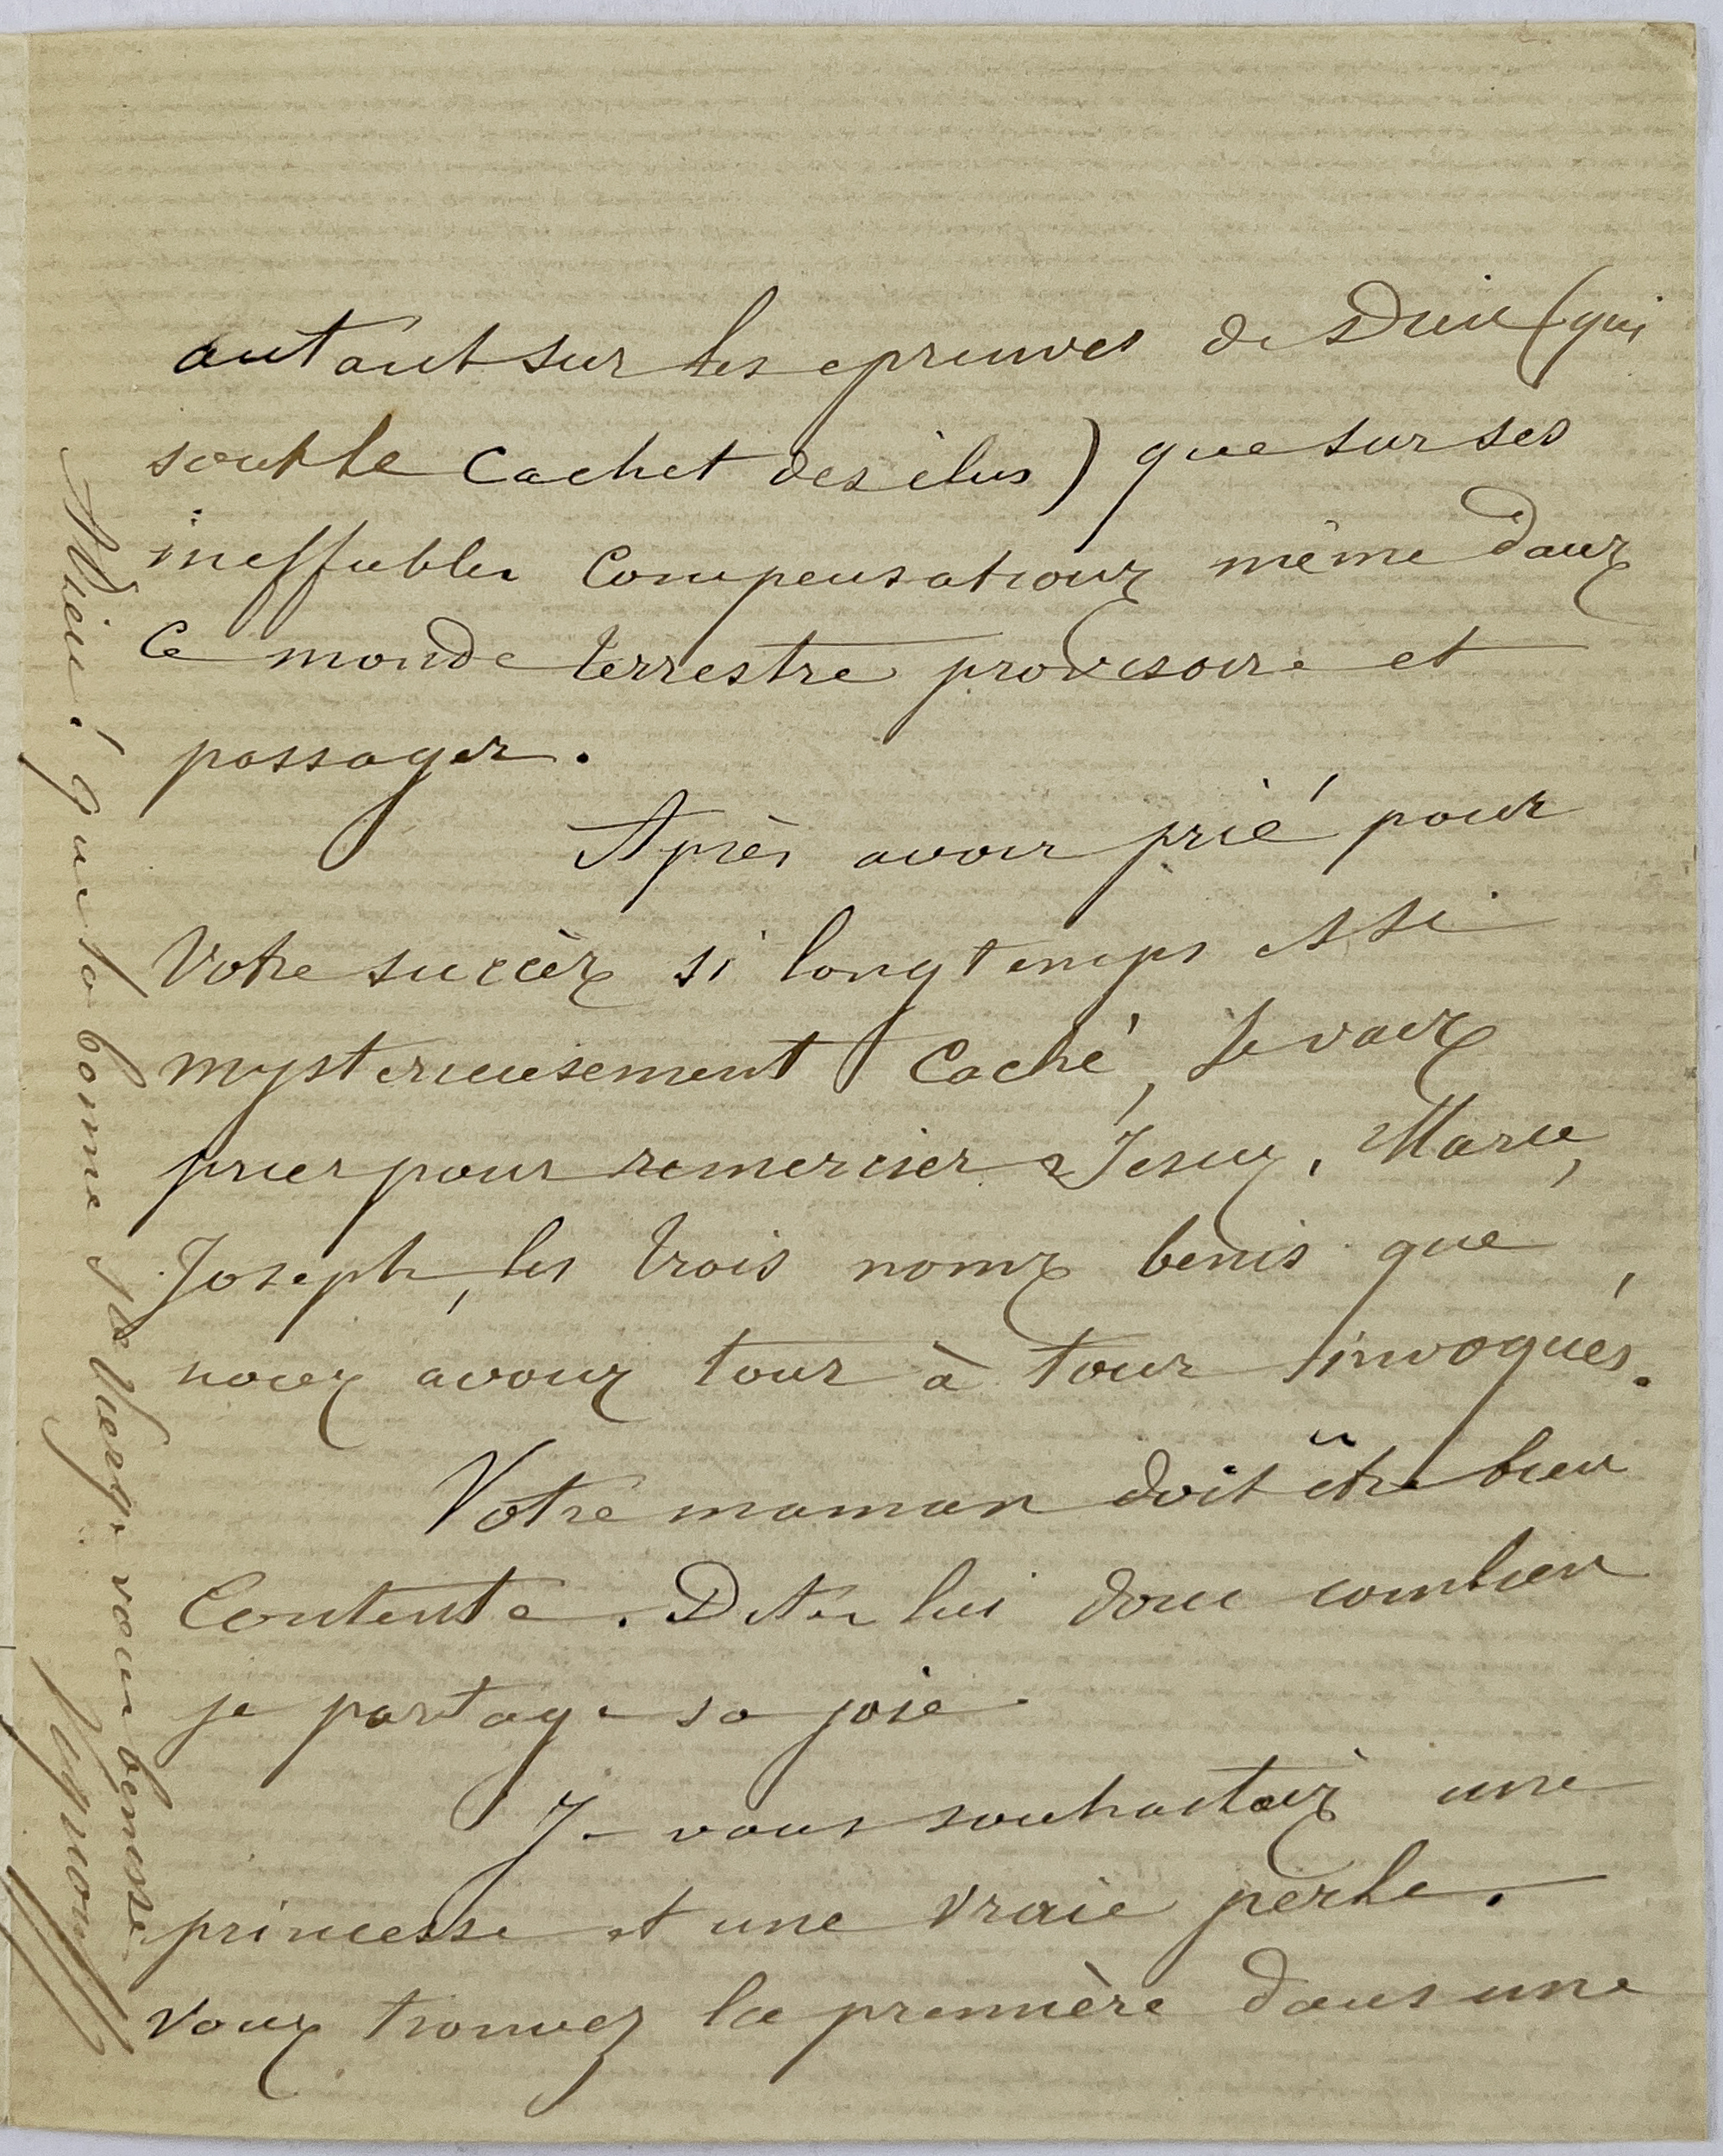 autant sur les epreuves de Dieu (qui
sont le cachet des élus) que sur ses
ineffables compensations même dans
ce monde terrestre provisoire et
passager.
Après avoir prié pour
Votre succès si longtemps et si
mysterieusement caché, Je vais
prier pour remercier Jesus, Marie,
Joseph, les trois noms benis que
nous avons tour à tour invoqués.
Votre maman doit être bien
Contente. Dites lui donc combien
je partage sa joie.
Je vous souhaitais une
princesse et une vraie perle.
Vous trouvez la première dans une
Adieu! que la bonne Ste Vierge vous benisse